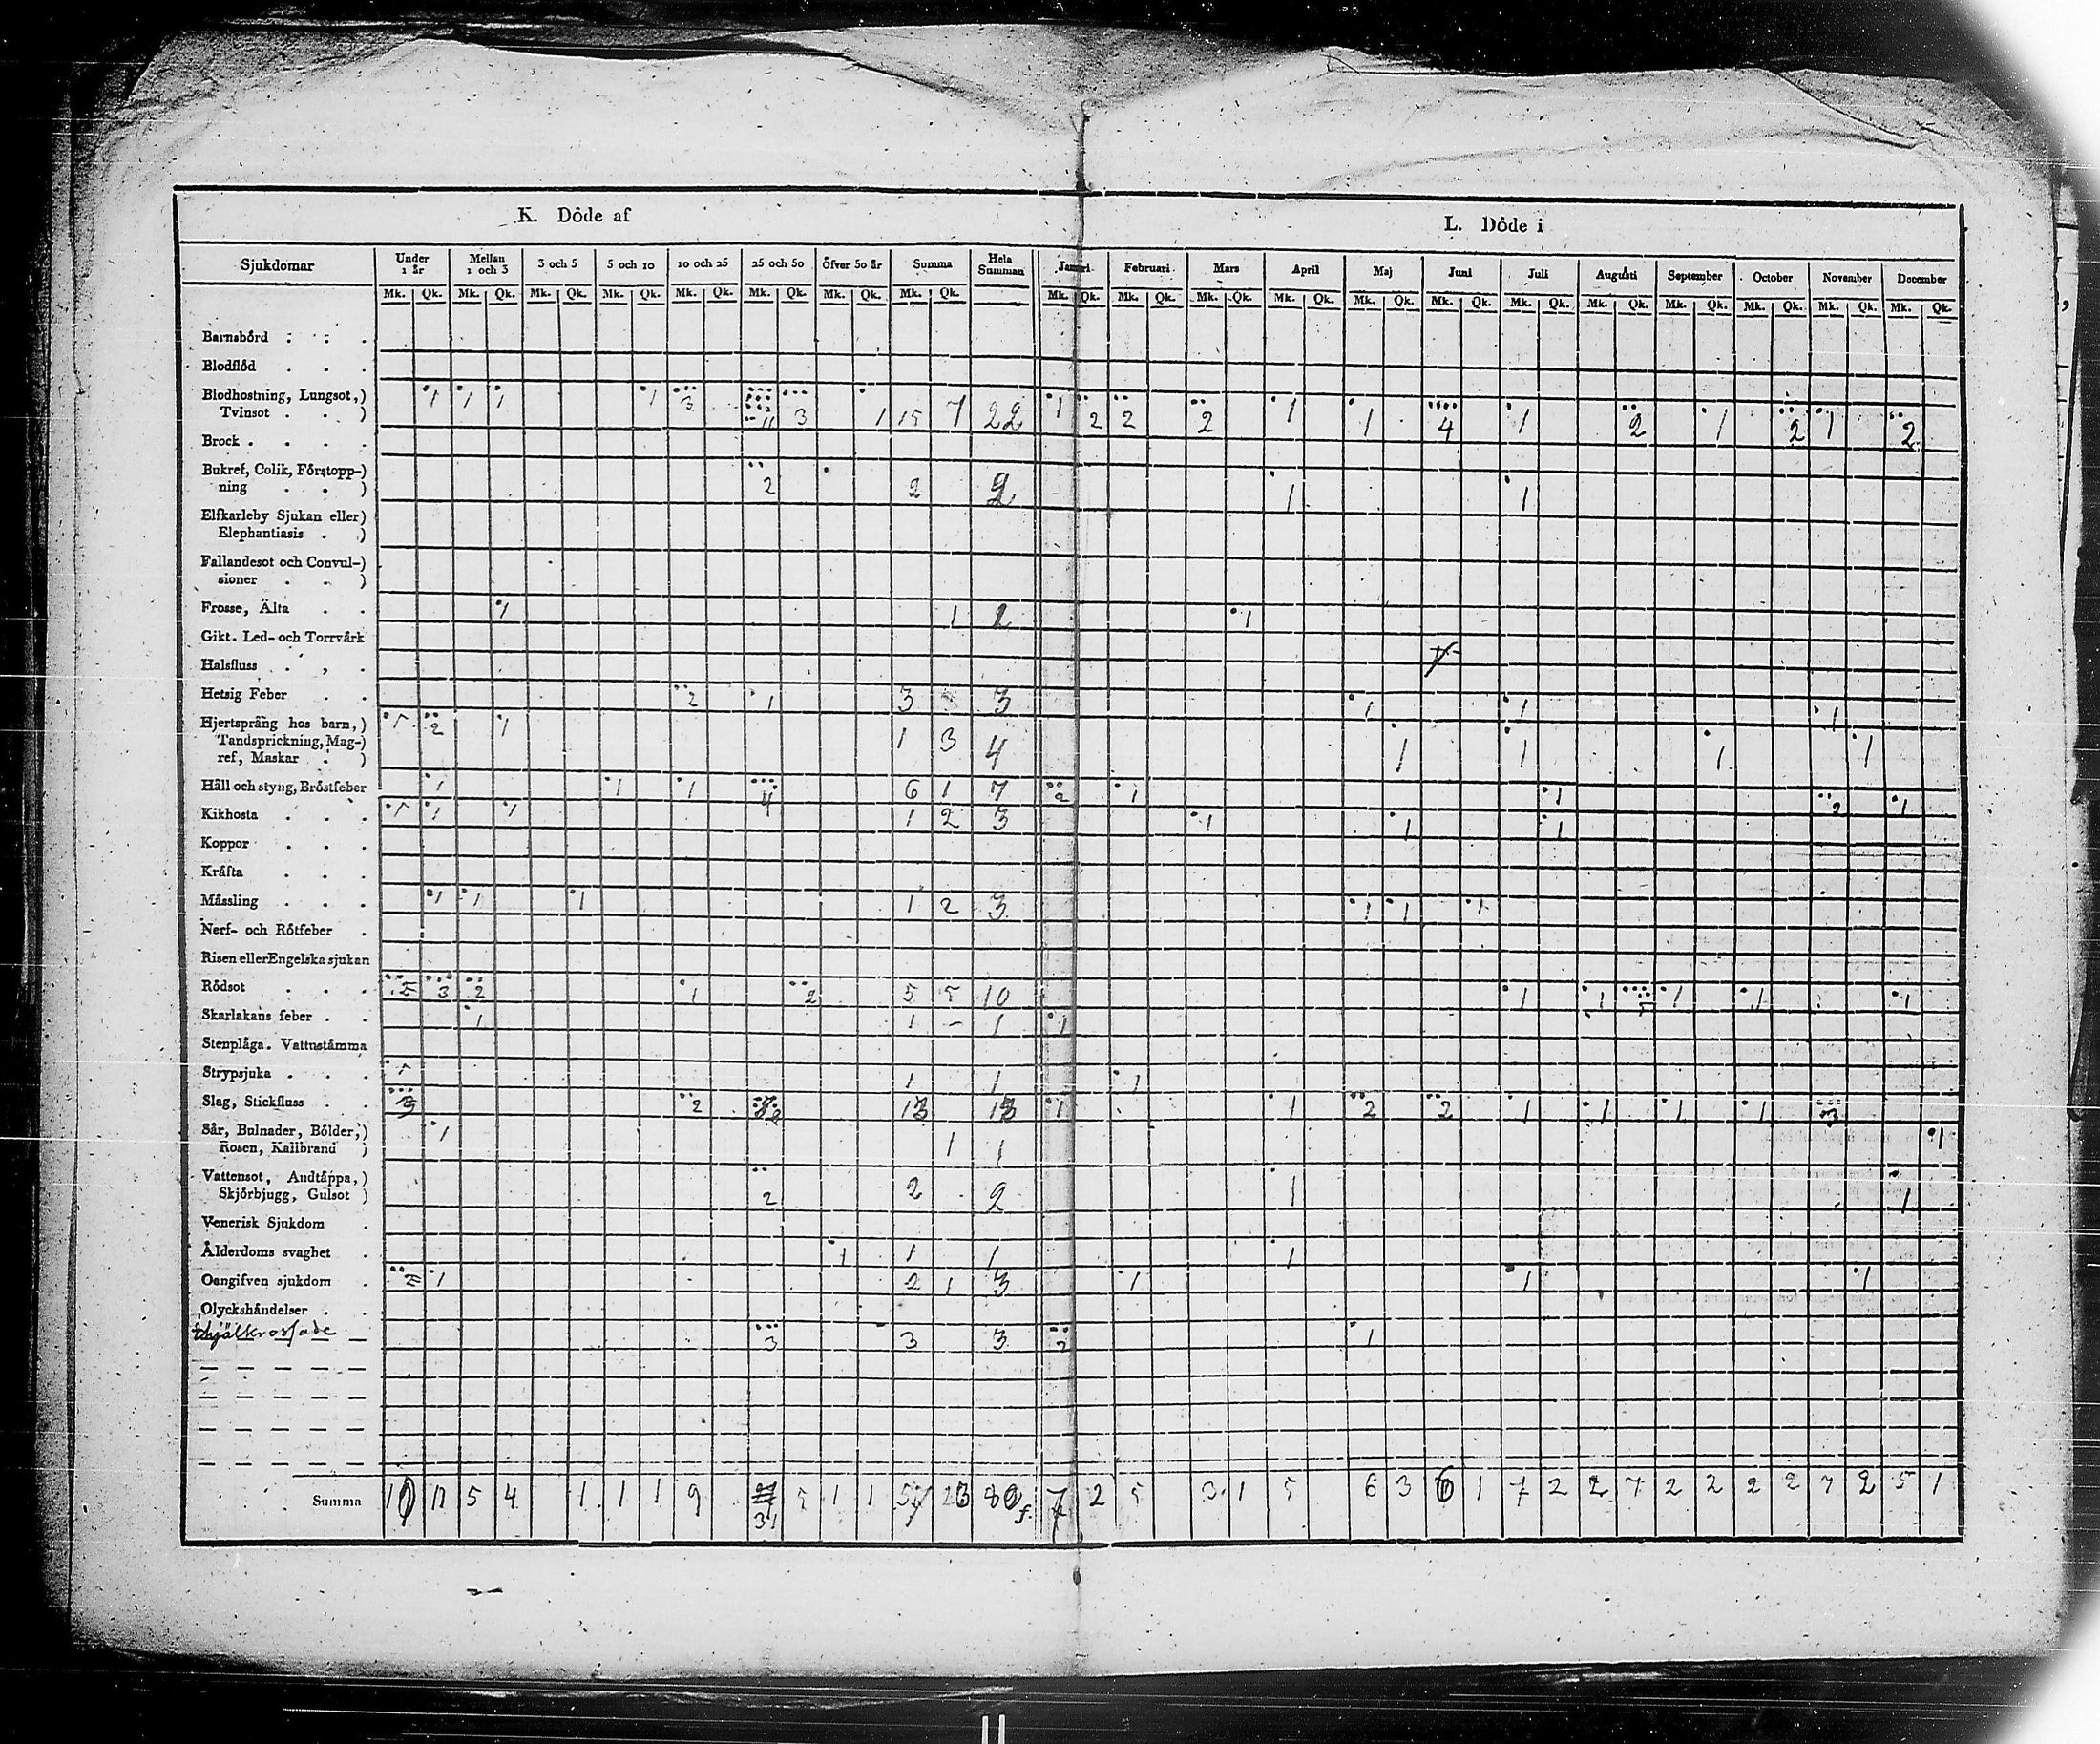 K. Döde af
L. Döde i
Sjukdomar Under 1 år Mellan 1 och 3 3 och 5 5 och 10 10 och 25 25 och 50 öfver 50 år Summa Hela Summan Januari Februari Mars April Maj Juni Juli Augusti September October November December
Mk. Qk. Mk. Qk. Mk. Qk. Mk. Qk. Mk. Qk. Mk. Qk. Mk. Qk. Mk. Qk. Mk. Qk. Mk. Qk. Mk. Qk. Mk. Qk. Mk. Qk. Mk. Qk. Mk. Qk. Mk. Qk. Mk. Qk. Mk. Qk. Mk. Qk. Mk. Qk.
Barnsbörd
Blodflöd
Blodhostning, Lungsot,)
Tvinsot . . ) 1 1 1 1 3 11 3 1 15 7 22 1 2 2 2 1 1 4 1 2 1 2 1 2
Brock . . . .
Bukref, Colik, Förstopp-)
ning . . ) 2 2 2 1 1
Elfkarleby Sjukan eller)
Elephantiasis . .)
Fallandesot och Convul-)
sioner . . )
Frosse, Älta . . 1 1 1 1
Gikt. Led- och Torrvärk
Halsfluss . , .
Hetsig Feber . . 2 1 3 3 1 1 1
Hjertsprång hos barn,)
Tandsprickning, Mag-)
ref, Maskar . ) 1 2 1 1 3 4 1 1 1 1
Håll och styng, Bröstfeber 1 1 1 4 6 1 7 2 1 1 2 1
Kikhosta . . . 1 1 1 1 2 3 1 1 1
Koppor . . .
Kräfta . . .
Mässling . . . 1 1 1 1 2 3 1 1 1
Nerf- och Rötfeber .
Risen eller Engelska sjukan
Rödsot . . . 2 3 2 1 2 5 5 10 1 1 5 1 1 1
Skarlakans feber . . 1 1 - 1 1
Stenplåga. Vattnstämma
Strypsjuka . . . 1 1 1 1
Slag, Stickfluss . . 3 2 13 13 1 1 2 2 1 1 1 1 3
Sår, Bulnader, Bölder,)
Rosen, Kallbrand ) 1 1 1 1
Vattensot, Andtäppa,)
Skjörbjugg, Gulsot ) 2 2 2 1 1
Venerisk Sjukdom .
Ålderdoms svaghet . 1 1 1 1
Oangifven sjukdom . 2 1 2 1 3 1 1 1
Olyckshändelser . .
ihjälkrossade 3 3 3 2 1
Summa 10 11 5 4 1 1 1 9 31 5 1 1 57 23 80 7 2 5 3 1 5 6 3 6 1 7 2 2 7 2 2 2 2 7 2 5 1